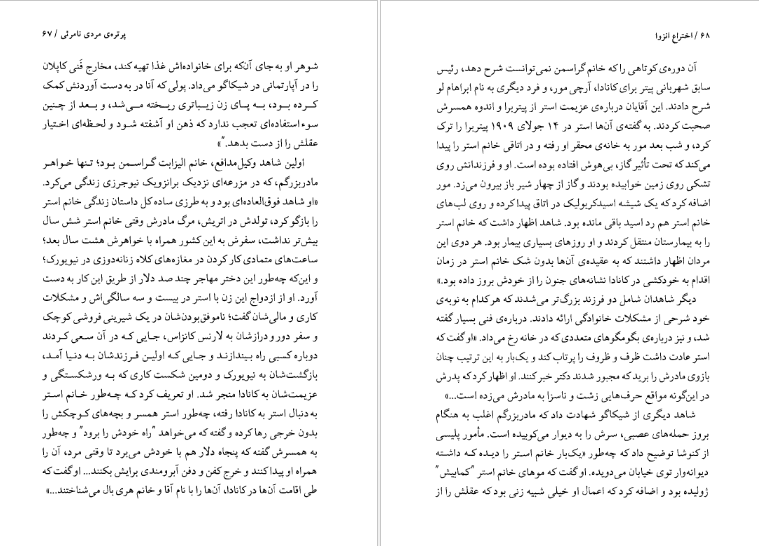 پرتره‌ی مردی نامرئی / ۶۷
شوهر او به جای آن‌که برای خانواده‌اش غذا تهیه کند، مخارج فَنی کاپلان
را در آپارتمانی در شیکاگو می‌داد. پولی که آنا در به دست آوردنش کمک
کرده بود، به پای زن زیباتری ریخته می‌شد، و بعد از چنین
سوءاستفاده‌ای تعجب ندارد که ذهن او آشفته شود و لحظه‌ای اختیار
عقلش را از دست بدهد."»
اولین شاهد وکیل‌مدافع، خانم الیزابت گراسمن بود؛ تنها خواهر
مادربزرگم، که در مزرعه‌ای نزدیک برانزویک نیوجرزی زندگی می‌کرد.
«او شاهد فوق‌العاده‌ای بود و به طرزی ساده کل داستان زندگی خانم استر
را بازگو کرد، تولدش در اتریش، مرگ مادرش وقتی خانم استر شش سال
بیش‌تر نداشت، سفرش به این کشور همراه با خواهرش هشت سال بعد؛
ساعت‌های متمادی کار کردن در مغازه‌های کلاه زنانه‌دوزی در نیویورک؛
و این‌که چه‌طور این دختر مهاجر چند صد دلار از طریق این کار به دست
آورد. او از ازدواج این زن با استر در بیست و سه سالگی‌اش و مشکلات
کاری و مالی‌شان گفت؛ ناموفق‌بودن‌شان در یک شیرینی فروشی کوچک
و سفر دور و درازشان به لارنس کانزاس، جایی که در آن سعی کردند
دوباره کسبی راه بیندازند و جایی که اولین فرزندشان به دنیا آمد،
بازگشت‌شان به نیویورک و دومین شکست کاری که به ورشکستگی و
عزیمت‌شان به کانادا منجر شد. او تعریف کرد که چه‌طور خانم استر
به دنبال استر به کانادا رفته، چه‌طور استر همسر و بچه‌های کوچکش را
بدون خرجی رها کرده و گفته که می‌خواهد "راه خودش را برود" و چه‌طور
به همسرش گفته که پنجاه دلار هم با خودش می‌برد تا وقتی مرد، آن را
همراه او پیدا کنند و خرج کفن و دفن آبرومندی برایش بکنند... او گفت که
طی اقامت آن‌ها در کانادا، آن‌ها را با نام آقا و خانم هری بال می‌شناختند...»
۶۸ / اختراع انزوا
آن دوره‌ی کوتاهی را که خانم گراسمن نمی‌توانست شرح دهد، رئیس
سابق شهربانی پیتر برای کانادا، آرچی مور، و فرد دیگری به نام ابراهام لو
شرح دادند. این آقایان درباره‌ی عزیمت استر از پیتربرا و اندوه همسرش
صحبت کردند. به گفته‌ی آن‌ها استر در ۱۴ جولای ۱۹۰۹ پیتربرا را ترک
کرد، و شب بعد مور به خانه‌ی محقر او رفته و در اتاقی خانم استر را پیدا
می‌کند که تحت تأثیر گاز، بی‌هوش افتاده بوده است. او و فرزندانش روی
تشکی روی زمین خوابیده بودند و گاز از چهار شیر باز بیرون می‌زد. مور
اضافه کرد که یک شیشه اسیدکربولیک در اتاق پیدا کرده و روی لب‌های
خانم استر هم رد اسید باقی مانده بود. شاهد اظهار داشت که خانم استر
را به بیمارستان منتقل کردند و او روزهای بسیاری بیمار بود. هر دوی این
مردان اظهار داشتند که به عقیده‌ی آن‌ها بدون شک خانم استر در زمان
اقدام به خودکشی در کانادا نشانه‌های جنون را از خودش بروز داده بود.»
دیگر شاهدان شامل دو فرزند بزرگ‌تر می‌شدند که هر کدام به نوبه‌ی
خود شرحی از مشکلات خانوادگی ارائه دادند. درباره‌ی فنی بسیار گفته
شد، و نیز درباره‌ی بگومگوهای متعددی که در خانه رخ می‌داد. «او گفت که
استر عادت داشت ظرف و ظروف را پرتاب کند و یک‌بار به این ترتیب چنان
بازوی مادرش را برید که مجبور شدند دکتر خبر کنند. او اظهار کرد که پدرش
در این‌گونه مواقع حرف‌هایی زشت و ناسزا به مادرش می‌زده است...»
شاهد دیگری از شیکاگو شهادت داد که مادربزرگم اغلب به هنگام
بروز حمله‌های عصبی، سرش را به دیوار می‌کوبیده است. مأمور پلیسی
از کنوشا توضیح داد که چه‌طور «یک‌بار خانم استر را دیده که داشته
دیوانه‌وار توی خیابان می‌دویده. او گفت که موهای خانم استر "کمابیش"
ژولیده بود و اضافه کرد که اعمال او خیلی شبیه زنی بود که عقلش را از